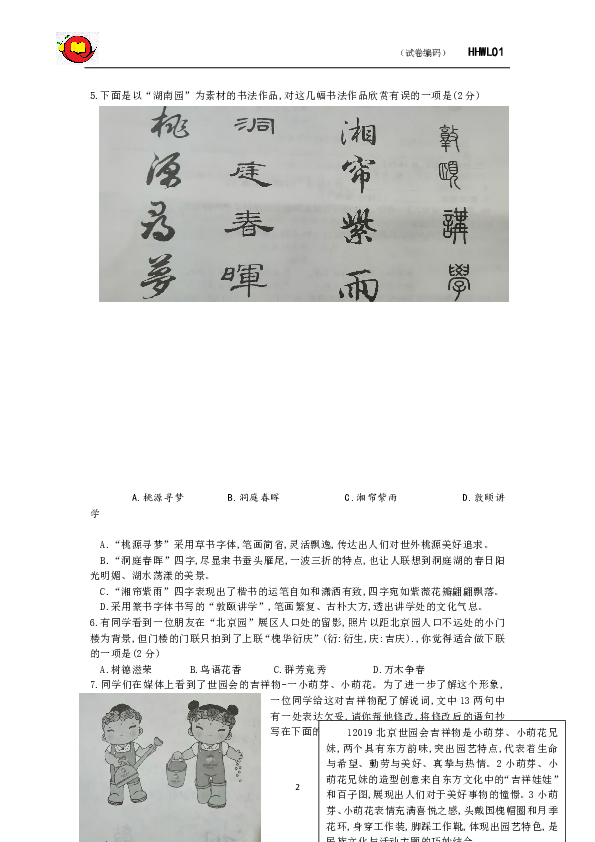 （试卷编码） HHWL01
5.下面是以“湖南园”为素材的书法作品,对这几幅书法作品欣赏有误的一项是(2分)
桃源尋夢
洞庭春暉
湘帘紫雨
敦頤講學
A.桃源寻梦 B.洞庭春晖 C.湘帘紫雨 D.敦颐讲
学
A.“桃源寻梦”采用草书字体,笔画简省,灵活飘逸,传达出人们对世外桃源美好追求。
B.“洞庭春晖”四字,尽显隶书蚕头雁尾,一波三折的特点,也让人联想到洞庭湖的春日阳
光明媚、湖水荡漾的美景。
C.“湘帘紫雨”四字表现出了楷书的运笔自如和潇洒有致,四字宛如紫薇花瓣翩翩飘落。
D.采用篆书字体书写的“敦颐讲学”,笔画繁复、古朴大方,透出讲学处的文化气息。
6.有同学看到一位朋友在“北京园”展区人口处的留影,照片以距北京园人口不远处的小门
楼为背景,但门楼的门联只拍到了上联“槐华衍庆”(衍:衍生,庆:吉庆).,你觉得适合做下联
的一项是(2分)
A.树德滋荣 B.鸟语花香 C.群芳竞秀 D.万木争春
7.同学们在媒体上看到了世园会的吉祥物-一小萌芽、小萌花。为了进一步了解这个形象,
一位同学给这对吉祥物配了解说词,文中13两句中
有一处表达欠妥,请你帮他修改,将修改后的语句抄
写在下面的
12019北京世园会吉祥物是小萌芽、小萌花兄
妹,两个具有东方韵味,突出园艺特点,代表着生命
与希望、勤劳与美好、真挚与热情。2小萌芽、小
萌花兄妹的造型创意来自东方文化中的“吉祥娃娃”
和百子图,展现出人们对于美好事物的憧憬。3小萌
芽、小萌花表情充满喜悦之感,头戴国槐帽圈和月季
花环,身穿工作装,脚踩工作靴,体现出园艺特色,是
2